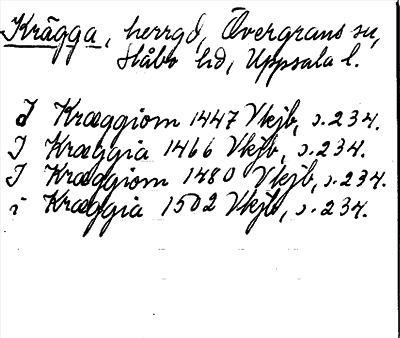 Krägga, herrgd, Övergrans sn,
Håbo hd, Uppsala l.
I Kræggiom 1447 Vkjb, s. 234.
I Kræggia 1466 Vkjb, s. 234.
I Kræggiom 1480 Vkjb, s. 234.
i Kræggia 1502 Vkjb, s. 234.